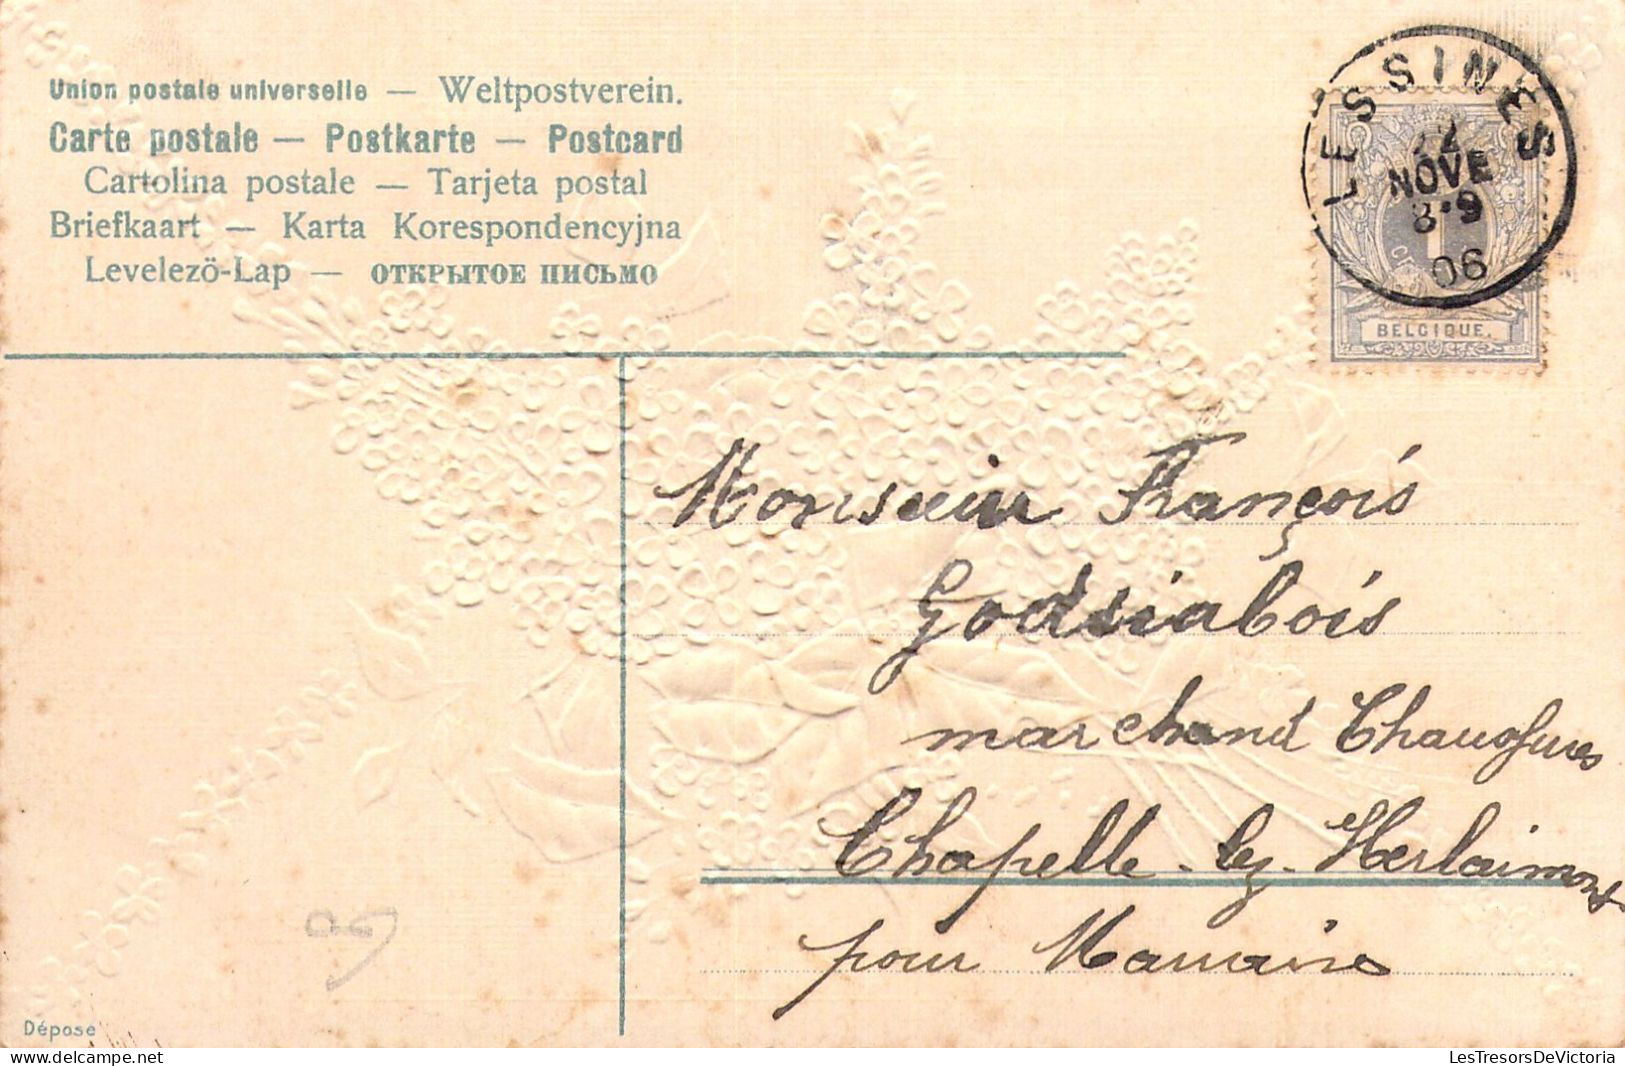 Union postale universelle — Weltpostverein.
Carte postale — Postkarte — Postcard
Cartolina postale — Tarjeta postal
Briefkaart — Karta Korespondencyjna
Levelezö-Lap — ОТКРЫТОЕ ПИСЬМО
LESSINES
12
NOVE
8-9
06
BELGIQUE.
Monsieur François
Godsiabois
marchand Chaussures
Chapelle-lez-Herlaimont
pour
Déposé
LesTresorsDeVictoria